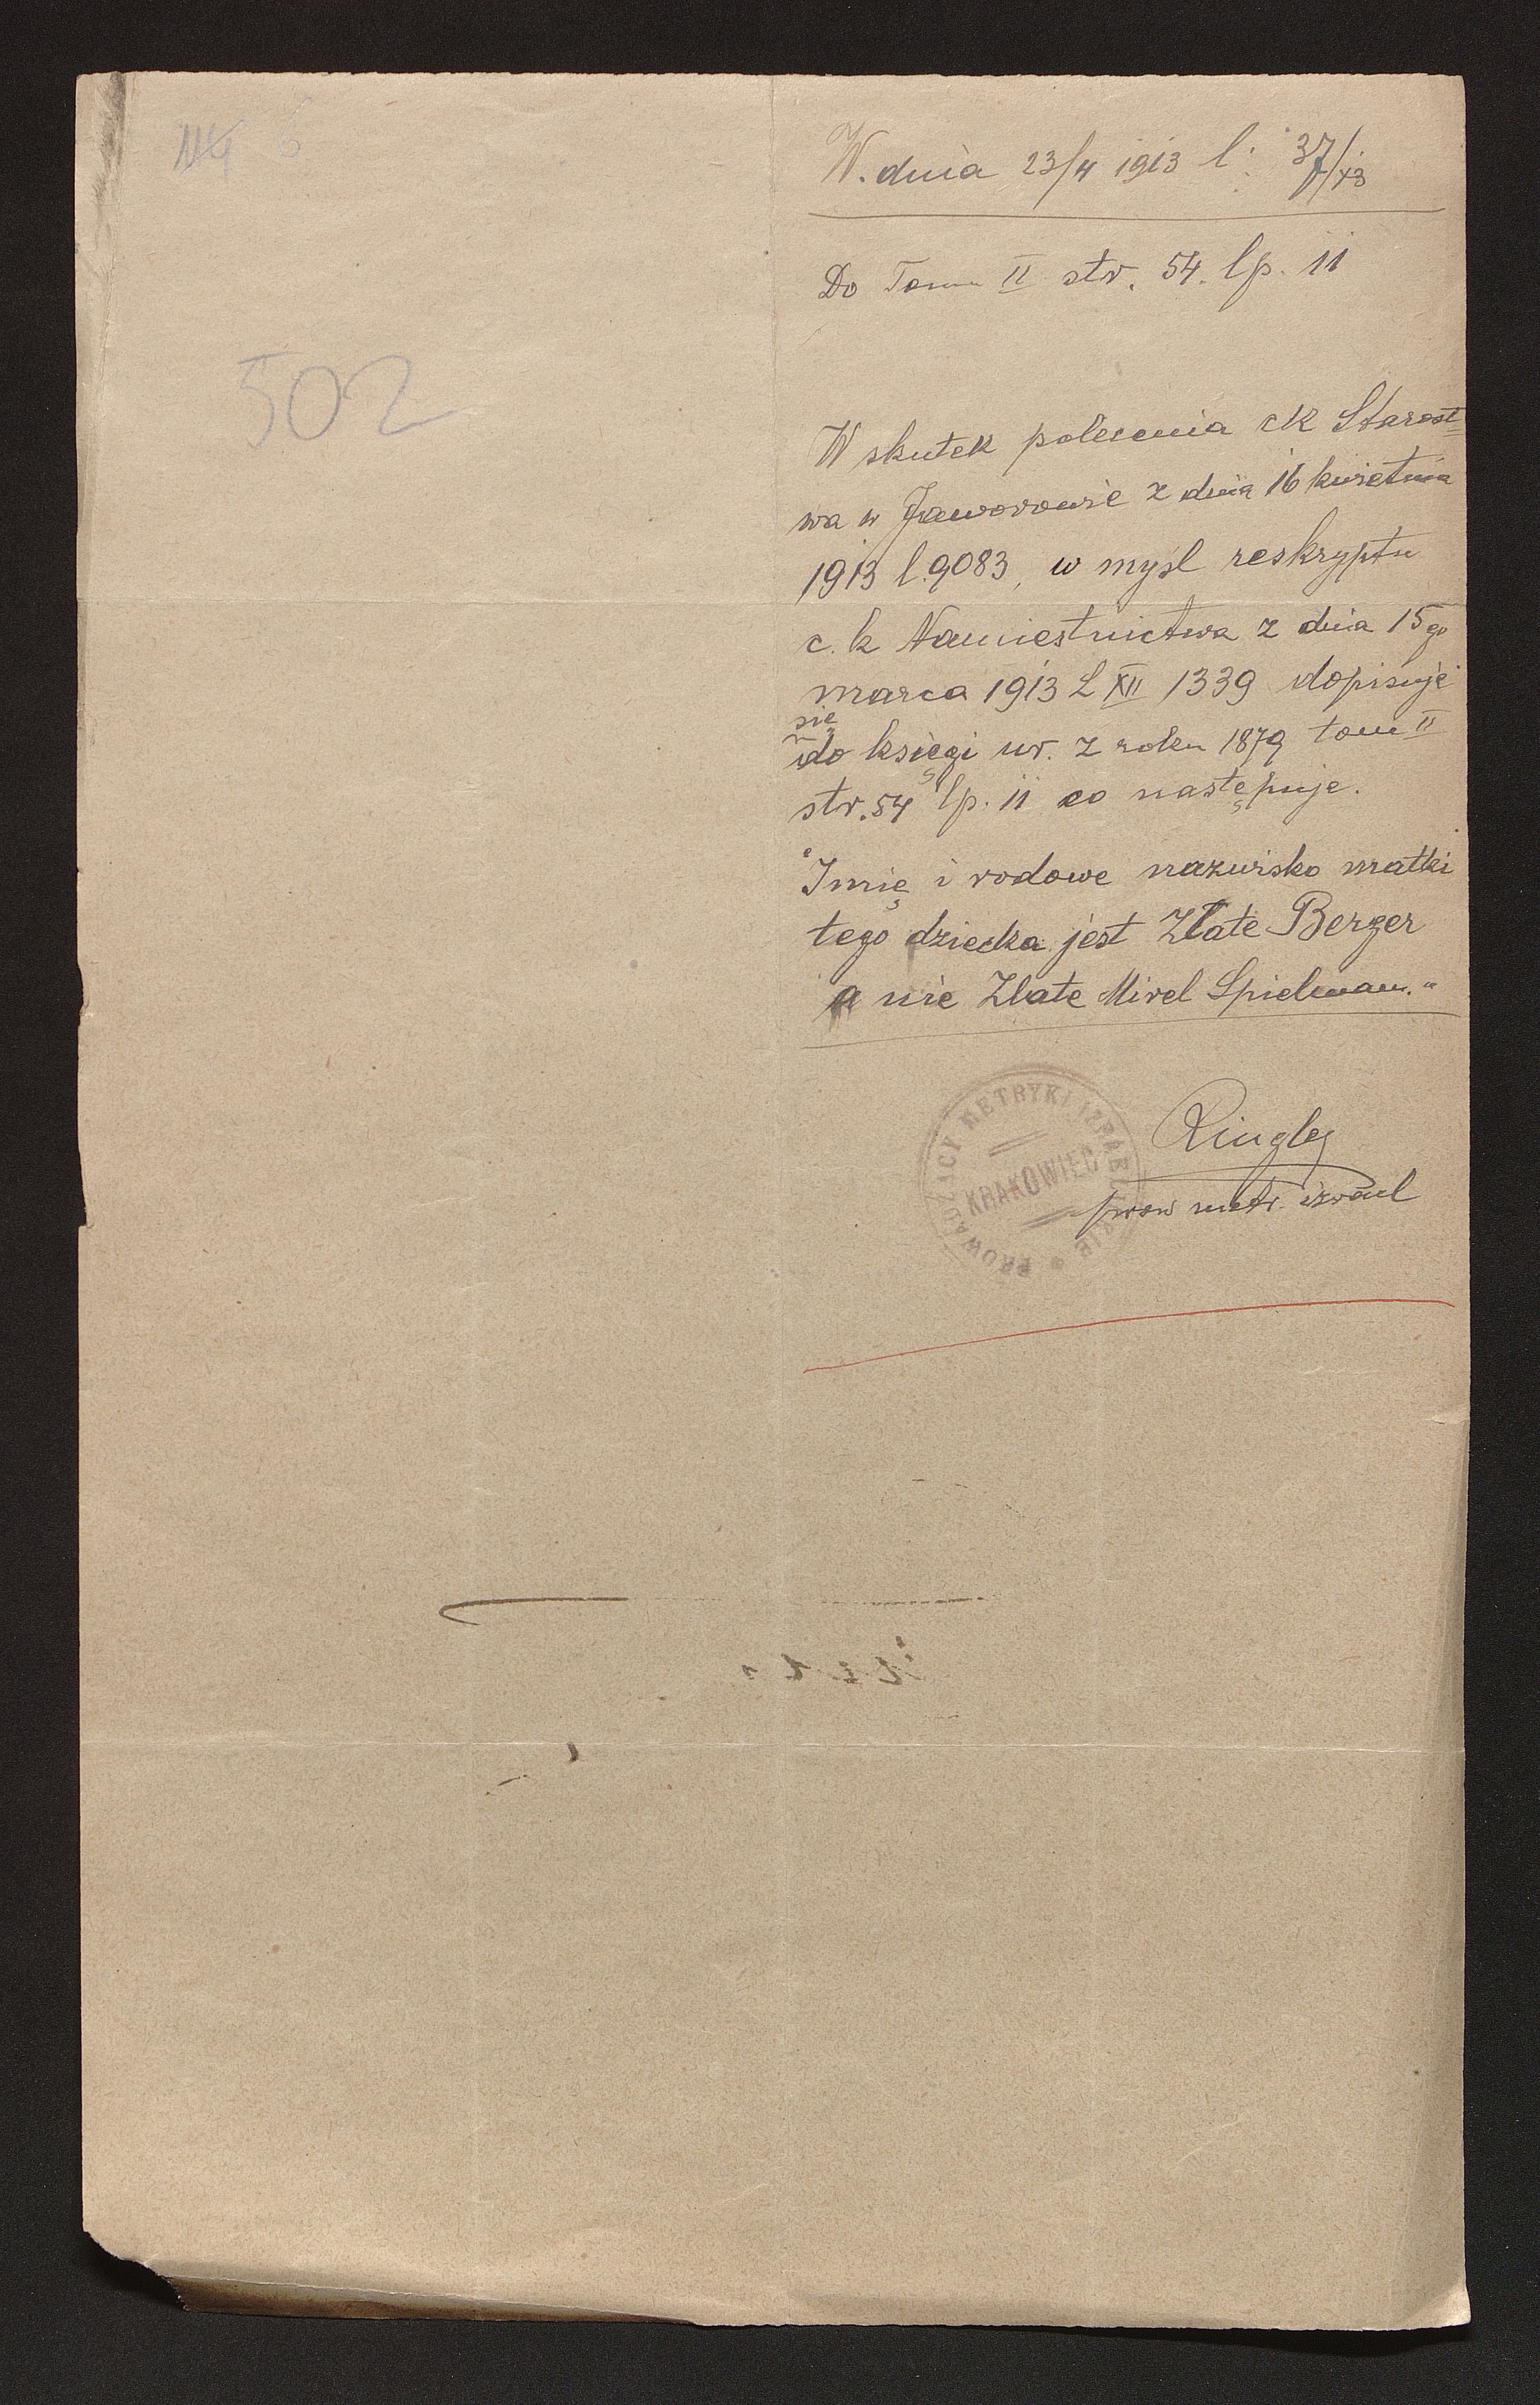 6
502
W. dnia 23/4 1913 l: 37/13
Do Tomu II str. 54. lp. 11
W skutek polecenia ck Starost=
wa w Jaworowie z dnia 16 kwietnia
1913 l. 9083, w myśl reskryptu
c. k Namiestnictwa z dnia 15go
marca 1913 L XII 1339 dopisuje
się
do księgi ur. z roku 1879 tom II
str. 54 lp. 11 co następuje.
"Imię i rodowe nazwisko matki
tego dziecka jest Zlate Berger
a nie Zlate Mirel Spielman."
PROWADZĄCY METRYKI IZRAELICKIE
KRAKOWIEC
prow metr. izrael